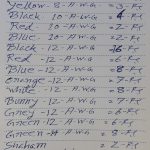 Yellow-8-A-W-G = 3-Ft
Black-10-A-W-G = 4-Ft
Red-10-A-W-G = 2-Ft
Blue-10-A-W-G = 2-Ft
Black-12-A-W-G = 16-Ft
Red-12-A-W-G = 6-Ft
Blue-12-A-W-G = 8-Ft
Orange-12-A-W-G = 7-Ft
White-12-A-W-G = 8-Ft
Bunny-12-A-W-G = 7-Ft
Grey-12-A-W-G = 6-Ft
Green-12-A-W-G = 6-Ft
Green-14-A-W-G = 8-Ft
= 2-Ft